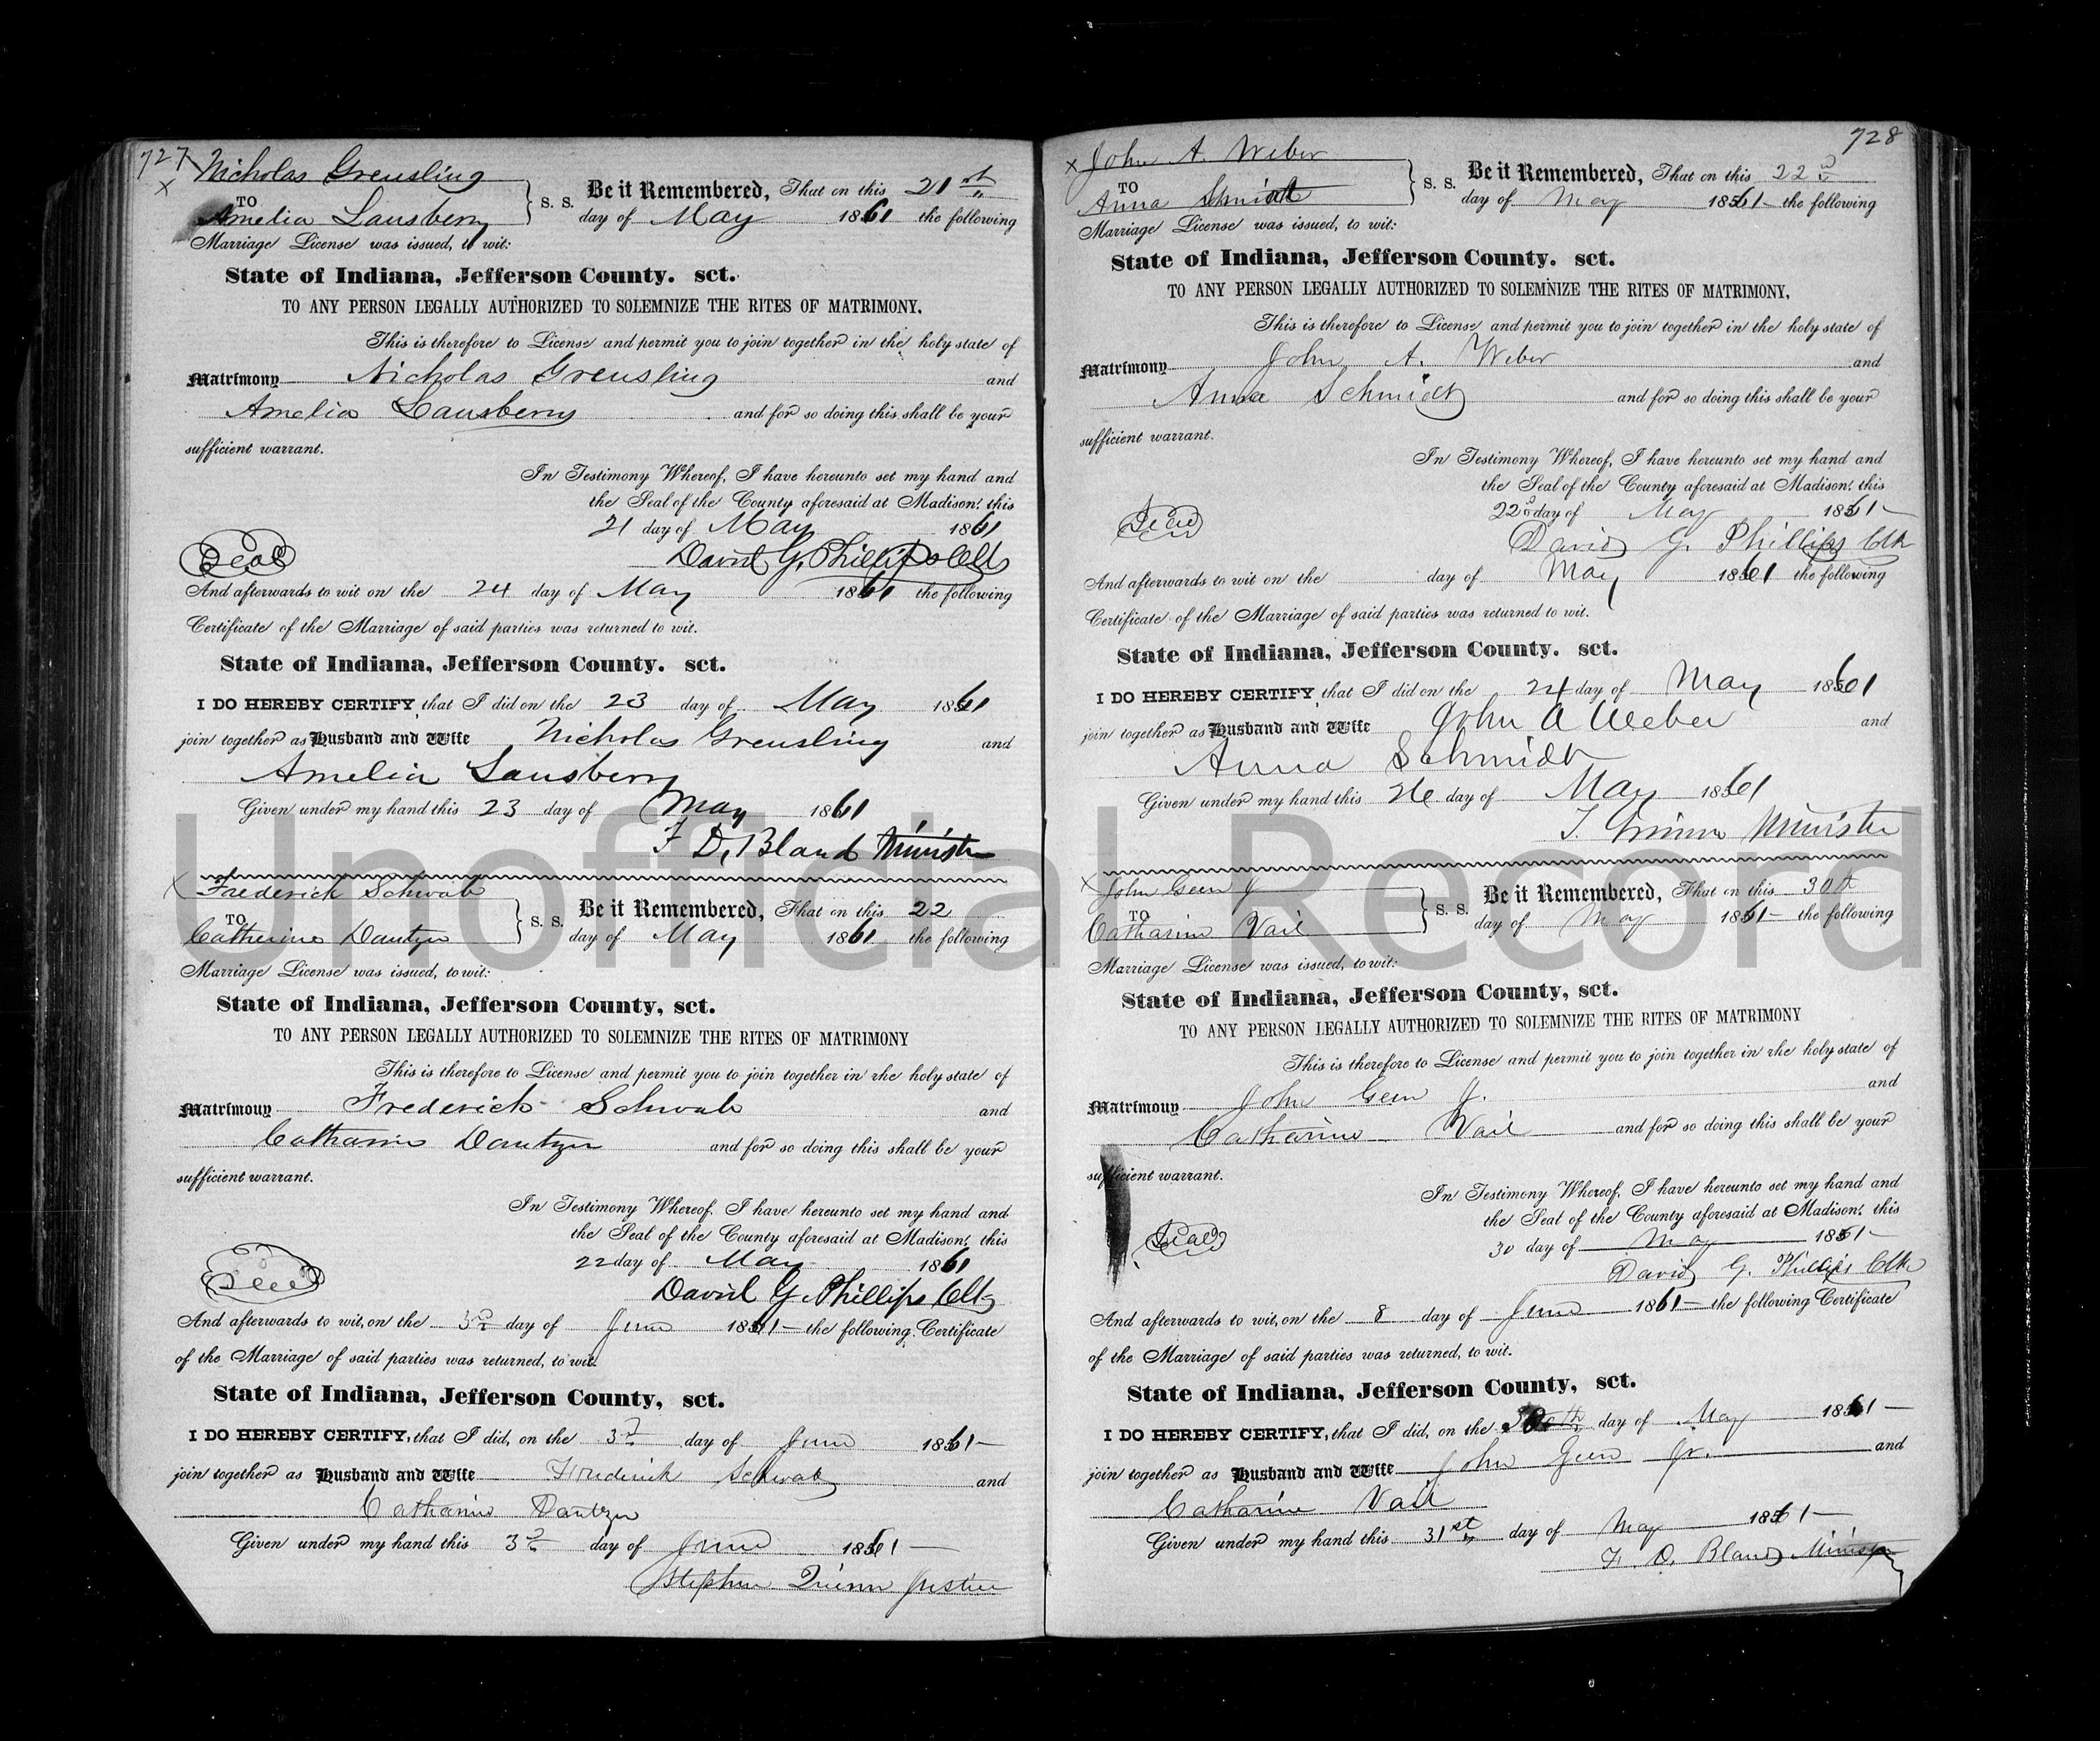 727
Nicholas Greusling
TO
Amelia Lansberry
S. S. Be it Remembered, That on this 21st
day of May 1861 the following
Marriage License was issued, to wit:
State of Indiana, Jefferson County. sct.
TO ANY PERSON LEGALLY AUTHORIZED TO SOLEMNIZE THE RITES OF MATRIMONY.
This is therefore to License and permit you to join together in the holy state of
Matrimony Nicholas Greusling and
Amelia Lansberry and for so doing this shall be your
sufficient warrant.
In Testimony Whereof, I have hereunto set my hand and
the Seal of the County aforesaid at Madison, this
21 day of May 1861
Seal David G. Phillips Clk
And afterwards to wit on the 24 day of May 1861 the following
Certificate of the Marriage of said parties was returned to wit.
State of Indiana, Jefferson County. sct.
I DO HEREBY CERTIFY, that I did on the 23 day of May 1861
join together as Husband and Wife Nicholas Greusling and
Amelia Lansberry
Given under my hand this 23 day of May 1861
F D. Bland Minister
Frederick Schwab
TO
Catherine Dantzer
S. S. Be it Remembered, That on this 22
day of May 1861 the following
Marriage License was issued, to wit:
State of Indiana, Jefferson County, sct.
TO ANY PERSON LEGALLY AUTHORIZED TO SOLEMNIZE THE RITES OF MATRIMONY
This is therefore to License and permit you to join together in rhe holy state of
Matrimony Frederick Schwab and
Catharine Dantzer and for so doing this shall be your
sufficient warrant.
In Testimony Whereof, I have hereunto set my hand and
the Seal of the County aforesaid at Madison, this
22 day of May 1861
Seal David G. Phillips Clk
And afterwards to wit, on the 3rd day of June 1861 the following Certificate
of the Marriage of said parties was returned, to wit.
State of Indiana, Jefferson County, sct.
I DO HEREBY CERTIFY, that I did, on the 3d day of June 1861
join together as Husband and Wife Frederick Schwab and
Catharine Dantzer
Given under my hand this 3d day of June 1861
Stephen Quinn Justice
728
John A. Weber
TO
Anna Schmidt
S. S. Be it Remembered, That on this 22d
day of May 1861 the following
Marriage License was issued, to wit:
State of Indiana, Jefferson County. sct.
TO ANY PERSON LEGALLY AUTHORIZED TO SOLEMNIZE THE RITES OF MATRIMONY,
This is therefore to License and permit you to join together in the holy state of
Matrimony John A. Weber and
Anna Schmidt and for so doing this shall be your
sufficient warrant.
In Testimony Whereof, I have hereunto set my hand and
the Seal of the County aforesaid at Madison, this
22d day of May 1861
Seal David G. Phillips Clk
And afterwards to wit on the day of May 1861 the following
Certificate of the Marriage of said parties was returned to wit.
State of Indiana, Jefferson County. sct.
I DO HEREBY CERTIFY, that I did on the 24 day of May 1861
join together as Husband and Wife John A Weber and
Anna Schmidt
Given under my hand this 26 day of May 1861
Minister
John Geen J
TO
Catharine Vail
S. S. Be it Remembered, That on this 30th
day of May 1861 the following
Marriage License was issued, to wit:
State of Indiana, Jefferson County, sct.
TO ANY PERSON LEGALLY AUTHORIZED TO SOLEMNIZE THE RITES OF MATRIMONY
This is therefore to License and permit you to join together in rhe holy state of
Matrimony John Geen J. and
Catharine Vail and for so doing this shall be your
sufficient warrant.
In Testimony Whereof, I have hereunto set my hand and
the Seal of the County aforesaid at Madison, this
30 day of May 1861
Seal David G. Phillips Clk
And afterwards to wit, on the 8 day of June 1861 the following Certificate
of the Marriage of said parties was returned, to wit.
State of Indiana, Jefferson County, sct.
I DO HEREBY CERTIFY, that I did, on the 30th day of May 1861
join together as Husband and Wife John Geen Jr. and
Catharine Vail
Given under my hand this 31st day of May 1861
F. D. Bland Minister
Unofficial Record